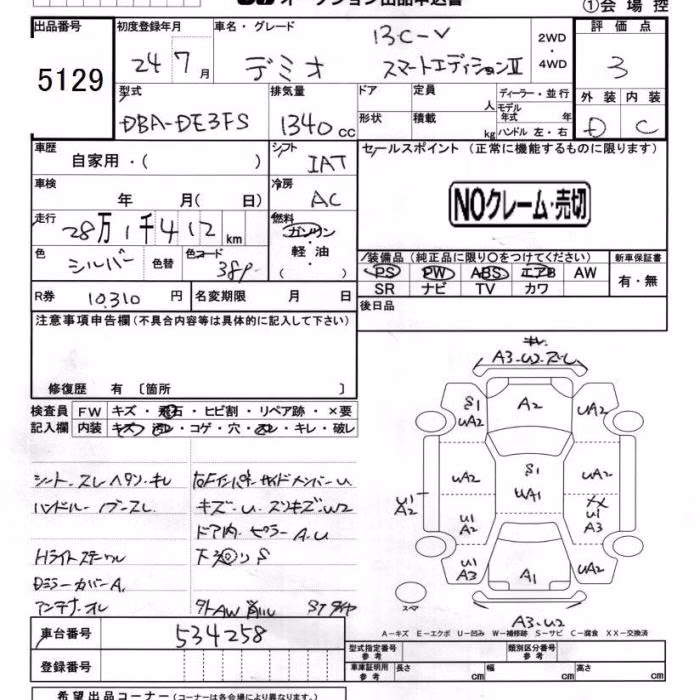 オークション出品申込書
①会場控
出品番号 初度登録年月 車名・グレード 13C-V 2WD・4WD 評価点
5129 24年7月 デミオ スマートエディションⅡ 3
型式 排気量 ドア 定員 人 ディーラー・並行 外装 内装
DBA-DE3FS 1340cc 形状 積載 kg モデル年式 年 ハンドル 左・右 D C
車歴 自家用・( ) シフト IAT セールスポイント (正常に機能するものに限ります)
車検 年 月( 日) 冷房 AC
NOクレーム・売切
走行 28万1千412km 燃料 ガソリン・軽油・( )
色 シルバー 色替 色コード 38P
装備品 (純正品に限り○をつけてください) 新車保証書
PS PW ABS エアB AW 有・無
SR ナビ TV カワ
R券 10,310円 名変期限 月 日 後日品
注意事項申告欄(不具合内容等は具体的に記入して下さい)
修復歴 有 〔箇所 〕
検査員記入欄 FW キズ・飛石・ヒビ割・リペア跡・×要
内装 キズ・汚レ・コゲ・穴・スレ・キレ・破レ
シート スレ ヘタン・キレ
ハンドル ノブ スレ
右Fインパネ サイドメンバーU
キズ・U ズンキズ・W2
ドア内 ピラーA.U
Hライトステール
下廻りS
Dミラーカバー A
アンテナ オレ
A3.W2
S1 UA2
A2
UA2
UA2
S1 UA1
UA2
U1 A2
U1 A2
XX U1 A3
U1 A3
A1
UA2
スペア
A3.W2
A-キズ E-エクボ U-凹み W-補修跡 S-サビ C-腐食 XX-交換済
車台番号 534258
登録番号
型式指定番号 参考 類別区分番号 参考
車庫証明用 参考 長さ cm 幅 cm 高さ cm
希望出品コーナー(コーナーは各会場により異なります。)